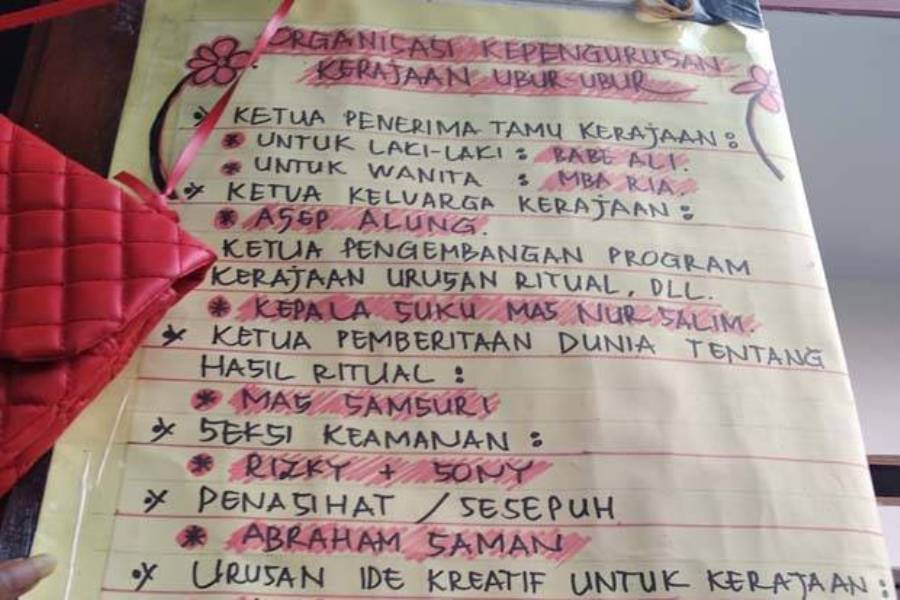 ORGANISASI KEPENGURUSAN
KERAJAAN UBUR-UBUR
KETUA PENERIMA TAMU KERAJAAN:
UNTUK LAKI-LAKI: BABE ALI.
UNTUK WANITA : MBA RIA.
KETUA KELUARGA KERAJAAN:
ASEP ALUNG.
KETUA PENGEMBANGAN PROGRAM
KERAJAAN URUSAN RITUAL, DLL.
KEPALA SUKU MAS NUR SALIM.
KETUA PEMBERITAAN DUNIA TENTANG
HASIL RITUAL :
MAS SAMSURI
SEKSI KEAMANAN :
RIZKY + SONY
PENASIHAT / SESEPUH
ABRAHAM SAMAN
URUSAN IDE KREATIF UNTUK KERAJAAN: